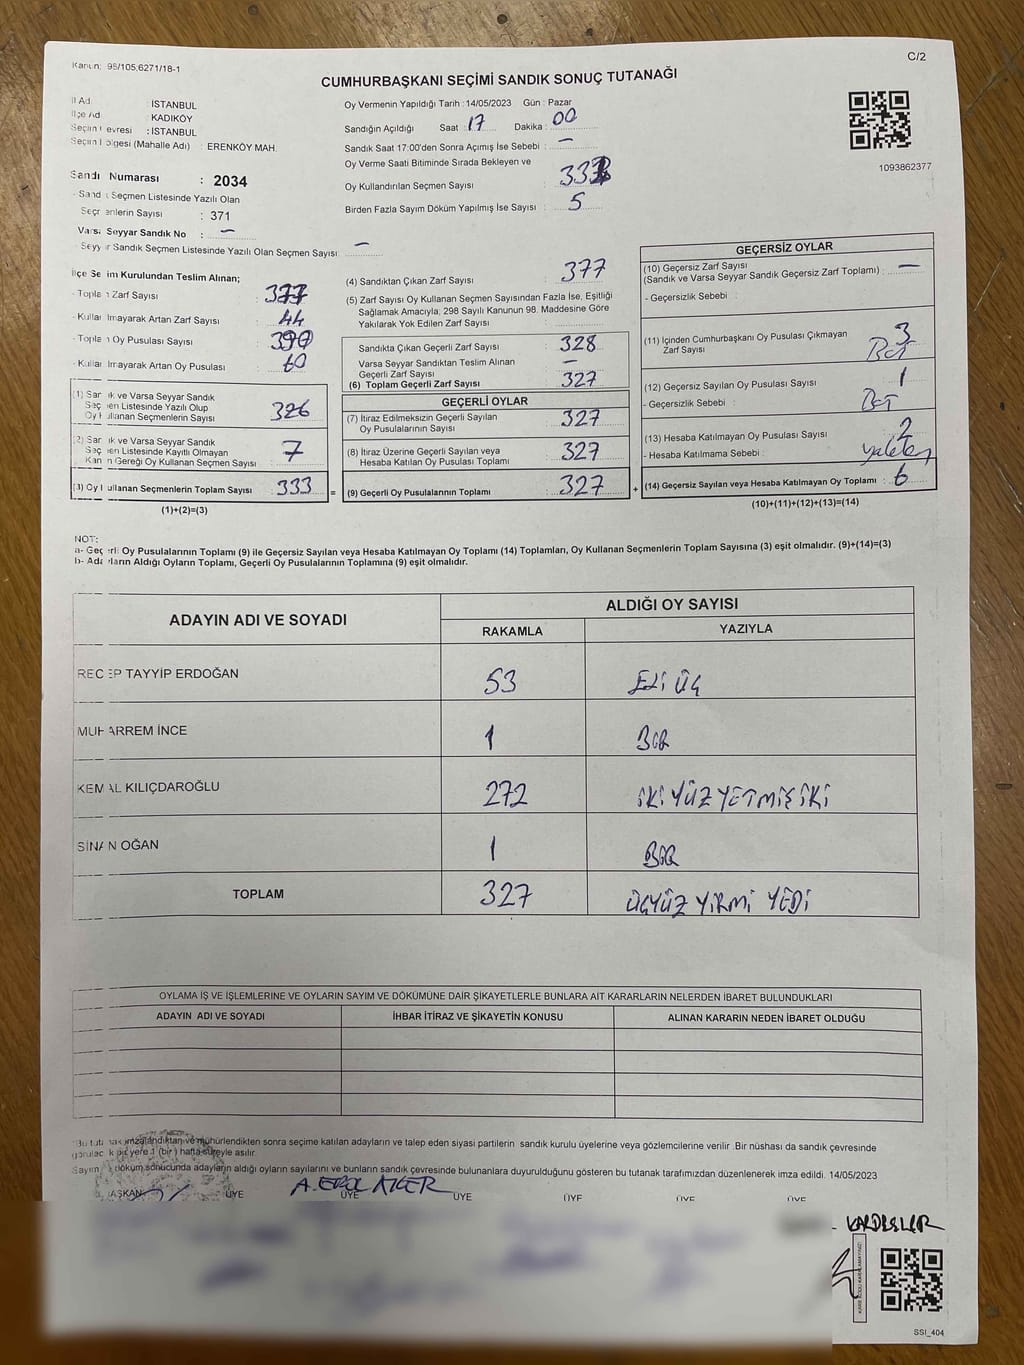 Kanun: 95/105,6271/18-1
C/2
CUMHURBAŞKANI SEÇİMİ SANDIK SONUÇ TUTANAĞI
İl Ad : İSTANBUL
İlçe Ad : KADIKÖY
Seçim Çevresi : İSTANBUL
Seçim Bölgesi (Mahalle Adı) : ERENKÖY MAH.
Sandık Numarası : 2034
- Sandık Seçmen Listesinde Yazılı Olan
Seçmenlerin Sayısı : 371
Varsa Seyyar Sandık No : –
- Seyyar Sandık Seçmen Listesinde Yazılı Olan Seçmen Sayısı: –
Oy Vermenin Yapıldığı Tarih : 14/05/2023 Gün : Pazar
Sandığın Açıldığı Saat : 17 Dakika : 00
Sandık Saat 17:00'den Sonra Açımış İse Sebebi : –
Oy Verme Saati Bitiminde Sırada Bekleyen ve
Oy Kullandırılan Seçmen Sayısı :
Birden Fazla Sayım Döküm Yapılmış İse Sayısı : 5
1093862377
İlçe Seçim Kurulundan Teslim Alınan;
- Toplam Zarf Sayısı : 377
- Kullanılmayarak Artan Zarf Sayısı : 44
- Toplam Oy Pusulası Sayısı :
- Kullanılmayarak Artan Oy Pusulası : 60
(1) Sandık ve Varsa Seyyar Sandık
Seçmen Listesinde Yazılı Olup
Oy Kullanan Seçmenlerin Sayısı : 326
(2) Sandık ve Varsa Seyyar Sandık
Seçmen Listesinde Kayıtlı Olmayan
Kanun Gereği Oy Kullanan Seçmen Sayısı : 7
(3) Oy Kullanan Seçmenlerin Toplam Sayısı : 333
(1)+(2)=(3)
(4) Sandıktan Çıkan Zarf Sayısı : 377
(5) Zarf Sayısı Oy Kullanan Seçmen Sayısından Fazla İse, Eşitliği
Sağlamak Amacıyla, 298 Sayılı Kanunun 98. Maddesine Göre
Yakılarak Yok Edilen Zarf Sayısı :
Sandıkta Çıkan Geçerli Zarf Sayısı : 328
Varsa Seyyar Sandıktan Teslim Alınan
Geçerli Zarf Sayısı : –
(6) Toplam Geçerli Zarf Sayısı : 327
GEÇERLİ OYLAR
(7) İtiraz Edilmeksizin Geçerli Sayılan
Oy Pusulalarının Sayısı : 327
(8) İtiraz Üzerine Geçerli Sayılan veya
Hesaba Katılan Oy Pusulası Toplamı : 327
= (9) Geçerli Oy Pusulalarının Toplamı : 327
GEÇERSİZ OYLAR
(10) Geçersiz Zarf Sayısı
(Sandık ve Varsa Seyyar Sandık Geçersiz Zarf Toplamı) : –
- Geçersizlik Sebebi :
(11) İçinden Cumhurbaşkanı Oy Pusulası Çıkmayan
Zarf Sayısı : 3
(12) Geçersiz Sayılan Oy Pusulası Sayısı : 1
- Geçersizlik Sebebi :
(13) Hesaba Katılmayan Oy Pusulası Sayısı : 2
- Hesaba Katılmama Sebebi :
+ (14) Geçersiz Sayılan veya Hesaba Katılmayan Oy Toplamı : 6
(10)+(11)+(12)+(13)=(14)
NOT:
a- Geçerli Oy Pusulalarının Toplamı (9) ile Geçersiz Sayılan veya Hesaba Katılmayan Oy Toplamı (14) Toplamları, Oy Kullanan Seçmenlerin Toplam Sayısına (3) eşit olmalıdır. (9)+(14)=(3)
b- Adayların Aldığı Oyların Toplamı, Geçerli Oy Pusulalarının Toplamına (9) eşit olmalıdır.
ADAYIN ADI VE SOYADI ALDIĞI OY SAYISI
RAKAMLA YAZIYLA
RECEP TAYYİP ERDOĞAN 53 ELİ ÜÇ
MUHARREM İNCE 1 BİR
KEMAL KILIÇDAROĞLU 272 İKİ YÜZ YETMİŞ İKİ
SİNAN OĞAN 1 BİR
TOPLAM 327 ÜÇYÜZ YİRMİ YEDİ
OYLAMA İŞ VE İŞLEMLERİNE VE OYLARIN SAYIM VE DÖKÜMÜNE DAİR ŞİKAYETLERLE BUNLARA AİT KARARLARIN NELERDEN İBARET BULUNDUKLARI
ADAYIN ADI VE SOYADI İHBAR İTİRAZ VE ŞİKAYETİN KONUSU ALINAN KARARIN NEDEN İBARET OLDUĞU
Bu tutanak imzalandıktan ve mühürlendikten sonra seçime katılan adayların ve talep eden siyasi partilerin sandık kurulu üyelerine veya gözlemcilerine verilir. Bir nüshası da sandık çevresinde
görülecek bir yere 1 (bir) hafta süreyle asılır.
Sayım döküm sonucunda adayların aldığı oyların sayılarını ve bunların sandık çevresinde bulunanlara duyurulduğunu gösteren bu tutanak tarafımızdan düzenlenerek imza edildi. 14/05/2023
BAŞKAN ÜYE ÜYE ÜYE ÜYE ÜYE ÜYE
KARE KODU KARALAMAYINIZ!
SSI_404